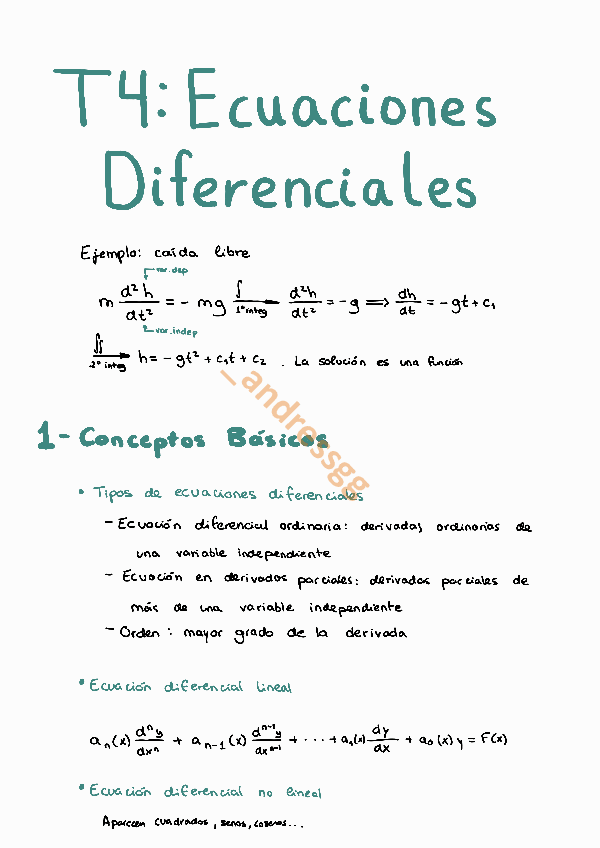 T4: Ecuaciones
Diferenciales
Ejemplo: caída libre
var.dep
m d²h/dt² = - mg ∫ 1ª integ → d²h/dt² = -g ⟹ dh/dt = -gt + c₁
var.indep
∬ 2ª integ → h = - gt² + c₁t + c₂ . La solución es una función
_andressgg
1- Conceptos Básicos
• Tipos de ecuaciones diferenciales
- Ecuación diferencial ordinaria: derivadas ordinarias de
una variable independiente
- Ecuación en derivadas parciales: derivadas parciales de
más de una variable independiente
- Orden: mayor grado de la derivada
• Ecuación diferencial lineal
aₙ(x) dⁿy/dxⁿ + aₙ₋₁(x) dⁿ⁻¹y/dxⁿ⁻¹ + ... + a₁(x) dy/dx + a₀(x) y = F(x)
• Ecuación diferencial no lineal
Aparecen cuadrados, senos, cosenos...